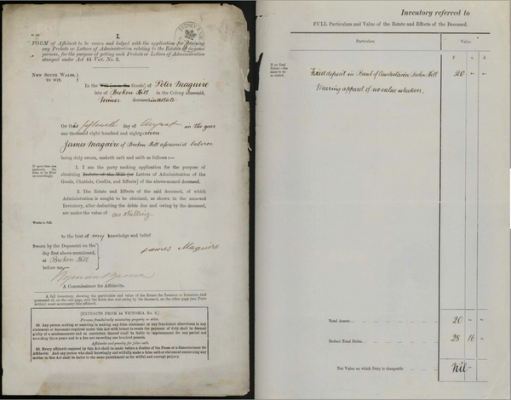 I.
FORM of Affidavit to be sworn and lodged with the application for obtaining
any Probate or Letters of Administration relating to the Estate of deceased
persons, for the purpose of getting such Probate or Letters of Administration
stamped under Act 44 Vic. No. 3.
NEW SOUTH WALES,
TO WIT.
In the Goods of Peter Maguire
late of Broken Hill in the Colony aforesaid,
Miner deceased intestate
On this fifteenth day of August in the year
one thousand eight hundred and eighty-seven
James Maguire of Broken Hill aforesaid laborer
being duly sworn, maketh oath and saith as follows:—
1. I am the party making application for the purpose of
obtaining Letters of Administration of the
Goods, Chattels, Credits, and Effects of the above-named deceased.
2. The Estate and Effects of the said deceased, of which
Administration is sought to be obtained, as shown in the annexed
Inventory, after deducting the debts due and owing by the deceased,
are under the value of one shilling
to the best of my knowledge and belief
Sworn by the Deponent on the
day first above mentioned,
at Broken Hill
before me,
James Maguire
A Commissioner for Affidavits.
A full Inventory, showing the particulars and value of the Estate
[EXTRACTS FROM 44 VICTORIA No. 3.]
Inventory referred to
FULL Particulars and Value of the Estate and Effects of the Deceased.
Particulars.
Value
£ s. d.
Fixed deposit in Bank of Australasia Broken Hill 20 - -
Wearing apparel of no value whatever.
Total Assets 20 - -
Deduct Total Debts 28 16 -
Net Value on which Duty is chargeable Nil